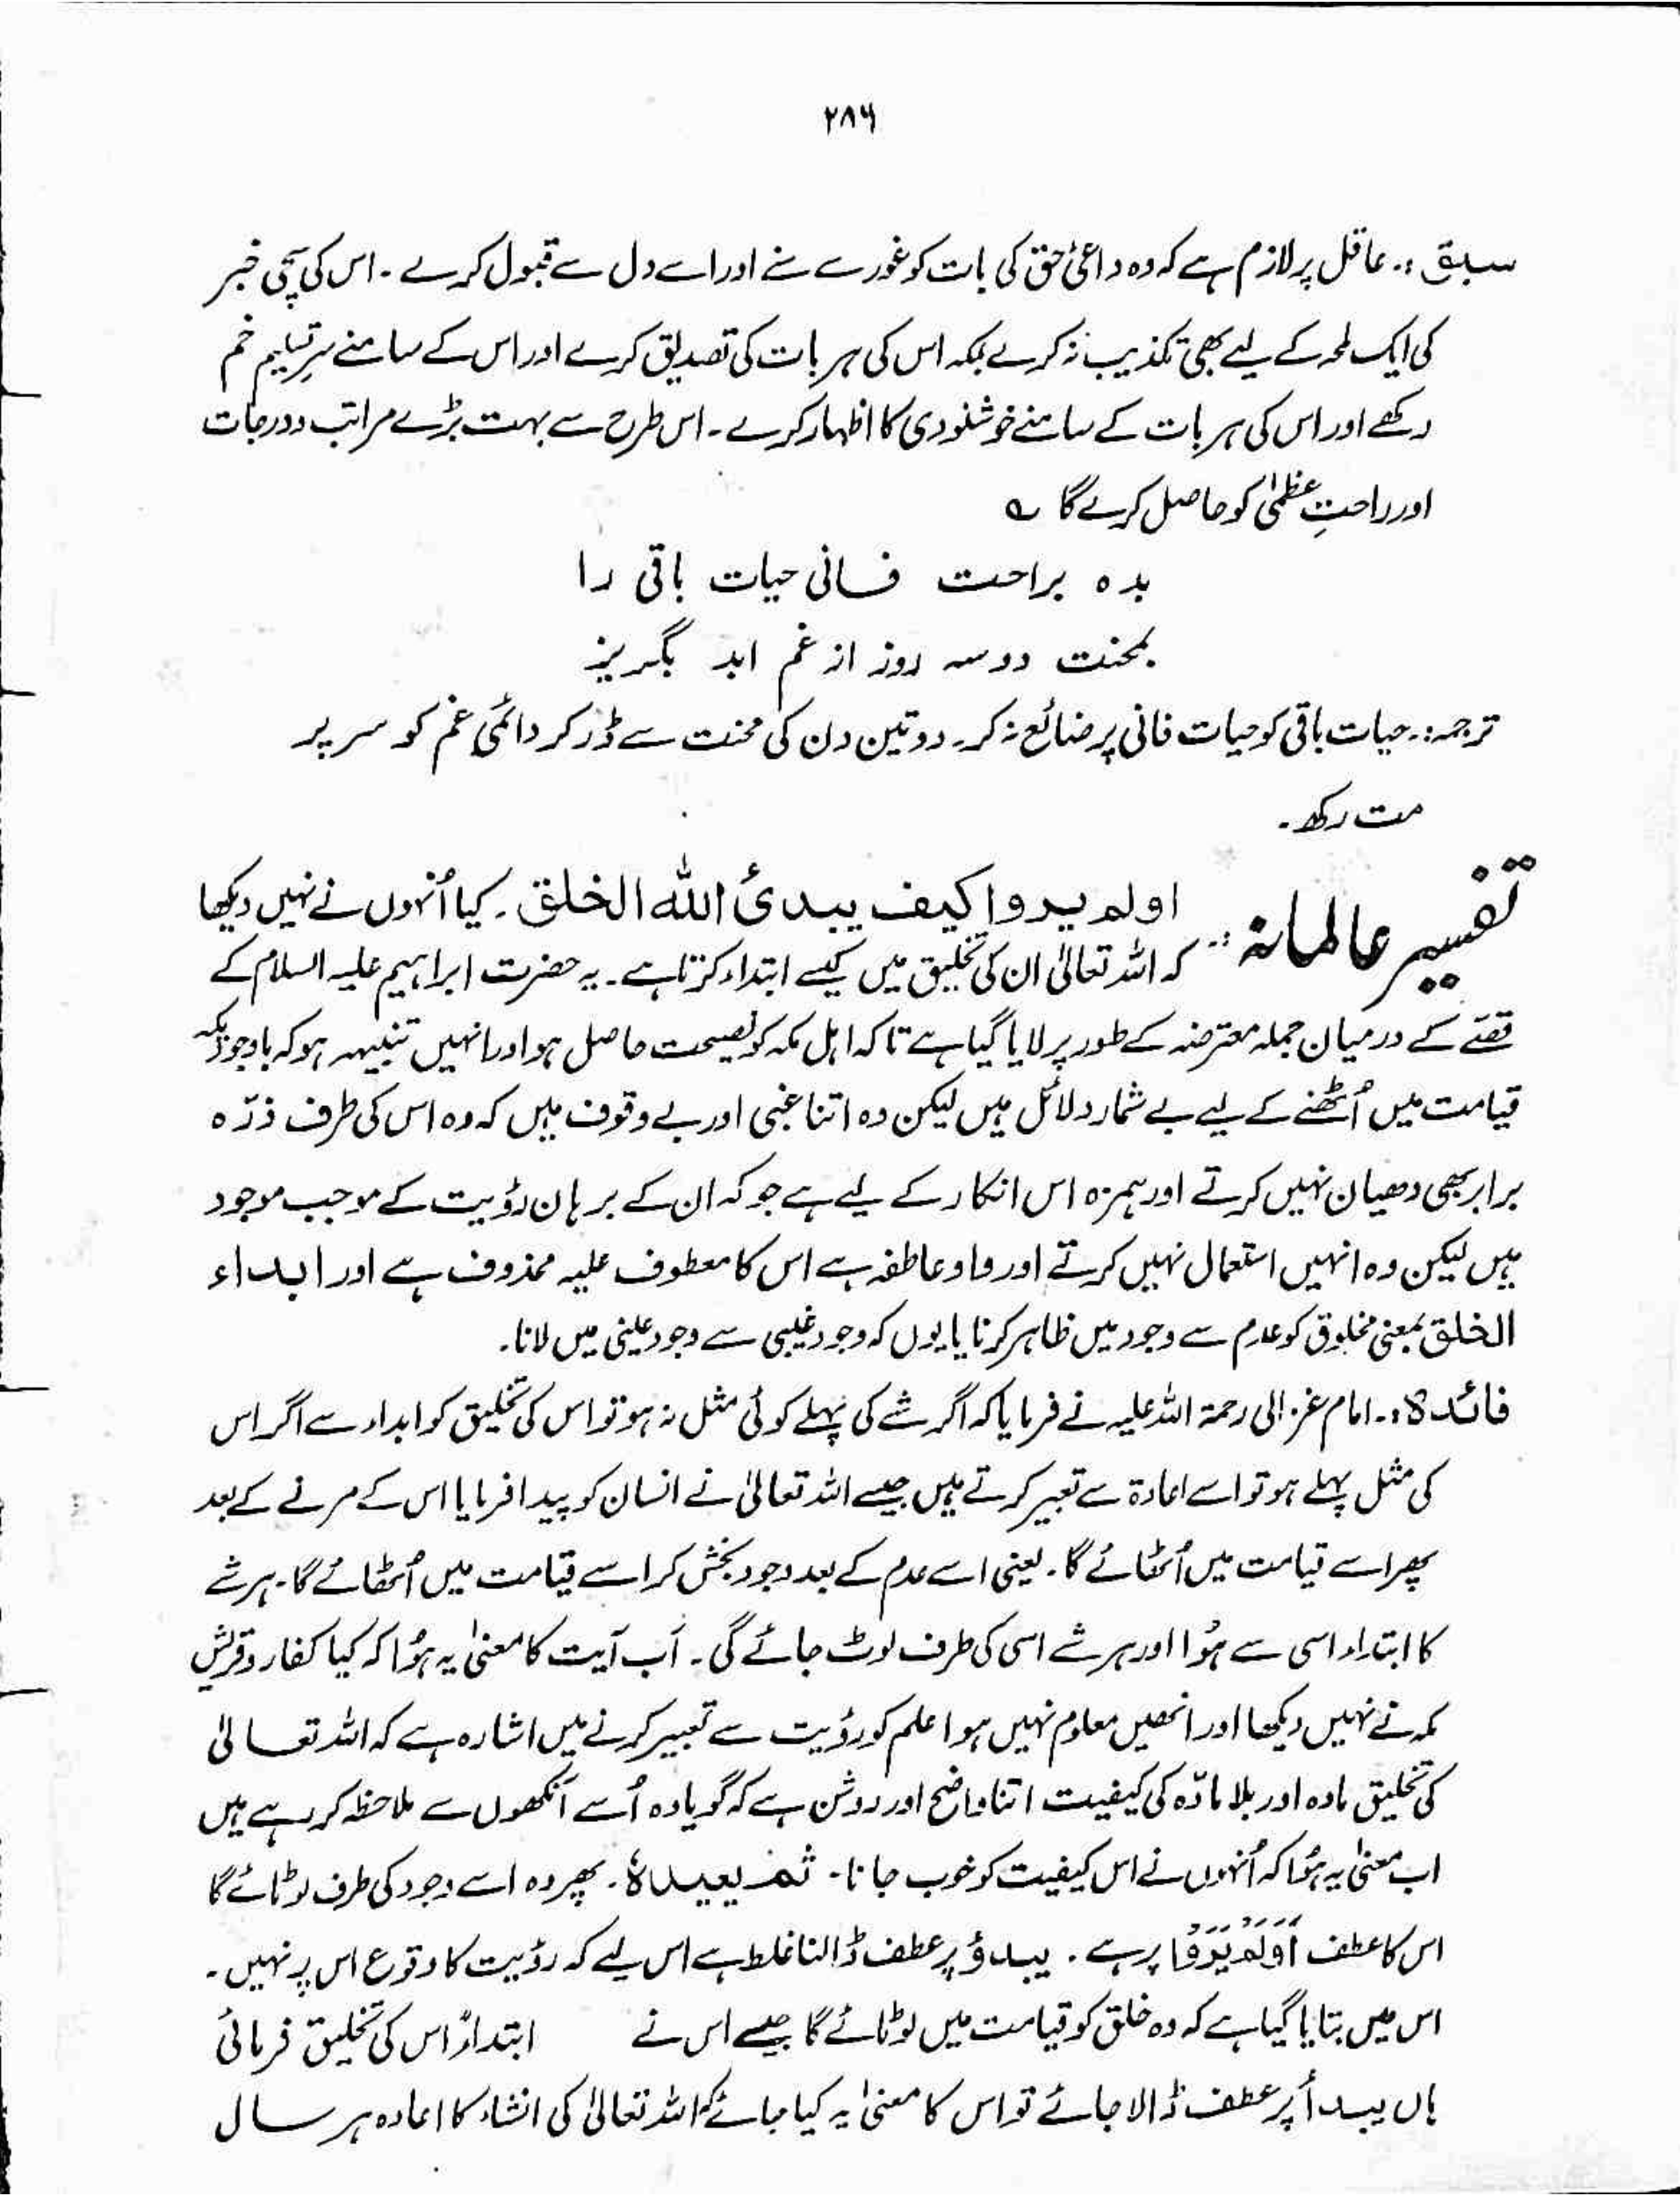 ۲۸۶
سبق :۔ عاقل پر لازم ہے کہ وہ داعیٔ حق کی بات کو غور سے سنے اور اسے دل سے قبول کرے ۔ اس کی سچی خبر
کی ایک لمحہ کے لیے بھی تکذیب نہ کرے بلکہ اس کی ہر بات کی تصدیق کرے اور اس کے سامنے سرِ تسلیم خم
رکھے اور اس کی ہر بات کے سامنے خوشنودی کا اظہار کرے ۔ اس طرح سے بہت بڑے مراتب و درجات
اور راحتِ عظمیٰ کو حاصل کرے گا ؎
بدہ براحت فانی حیات باقی را
بمحنت دو سہ روز از غم ابد بگریز
ترجمہ:۔ حیات باقی کو حیات فانی پر ضائع نہ کر۔ دو تین دن کی محنت سے ڈر کر دائمی غم کو سر پر
مت رکھ ۔
تفسیر عالمانہ :۔ اولم یروا کیف یبدیٔ اللہ الخلق ۔ کیا اُنہوں نے نہیں دیکھا
کہ اللہ تعالیٰ ان کی تخلیق میں کیسے ابتداء کرتا ہے ۔ یہ حضرت ابراہیم علیہ السلام کے
قصّے کے درمیان جملہ معترضہ کے طور پر لایا گیا ہے تاکہ اہل مکہ کو نصیحت حاصل ہو اور انہیں تنبیہہ ہو کہ باوجودیکہ
قیامت میں اُٹھنے کے لیے بے شمار دلائل ہیں لیکن وہ اتنا غبی اور بے وقوف ہیں کہ وہ اس کی طرف ذرّہ
برابر بھی دھیان نہیں کرتے اور ہمزہ اس انکار کے لیے ہے جو کہ ان کے برہان رؤیت کے موجب موجود
ہیں لیکن وہ انہیں استعمال نہیں کرتے اور واو عاطفہ ہے اس کا معطوف علیہ محذوف ہے اور ابداء
الخلق بمعنی مخلوق کو عدم سے وجود میں ظاہر کرنا یا یوں کہ وجود غیبی سے وجود عینی میں لانا ۔
فائدہ :۔ امام غزالی رحمۃ اللہ علیہ نے فرمایا کہ اگر شے کی پہلے کوئی مثل نہ ہو تو اس کی تخلیق کو ابداء سے اگر اس
کی مثل پہلے ہو تو اسے اعادۃ سے تعبیر کرتے ہیں جیسے اللہ تعالیٰ نے انسان کو پیدا فرمایا اس کے مرنے کے بعد
پھر اسے قیامت میں اُٹھائے گا ۔ یعنی اسے عدم کے بعد وجود بخش کر اسے قیامت میں اُٹھائے گا ۔ ہر شے
کا ابتداء اسی سے ہُوا اور ہر شے اسی کی طرف لوٹ جائے گی ۔ اَب آیت کا معنیٰ یہ ہُوا کہ کیا کفار و قریش
مکہ نے نہیں دیکھا اور انھیں معلوم نہیں ہوا علم کو رؤیت سے تعبیر کرنے میں اشارہ ہے کہ اللہ تعالیٰ
کی تخلیق مادہ اور بلا مادّہ کی کیفیت اتنا واضح اور روشن ہے کہ گویا وہ اُسے آنکھوں سے ملاحظہ کر رہے ہیں
اب معنیٰ یہ ہُوا کہ اُنہوں نے اس کیفیت کو خوب جانا ۔ ثم یعیدہٗ ۔ پھر وہ اسے وجود کی طرف لوٹائے گا
اس کا عطف اَوَلَمْ یَرَوْا پر ہے ۔ یبدؤ پر عطف ڈالنا غلط ہے اس لیے کہ رؤیت کا وقوع اس پر نہیں ۔
اس میں بتایا گیا ہے کہ وہ خلق کو قیامت میں لوٹائے گا جیسے اس نے ابتداءً اس کی تخلیق فرمائی
ہاں یبدأ پر عطف ڈالا جائے تو اس کا معنیٰ یہ کیا جائے کہ اللہ تعالیٰ کی انشاء کا اعادہ ہر سال